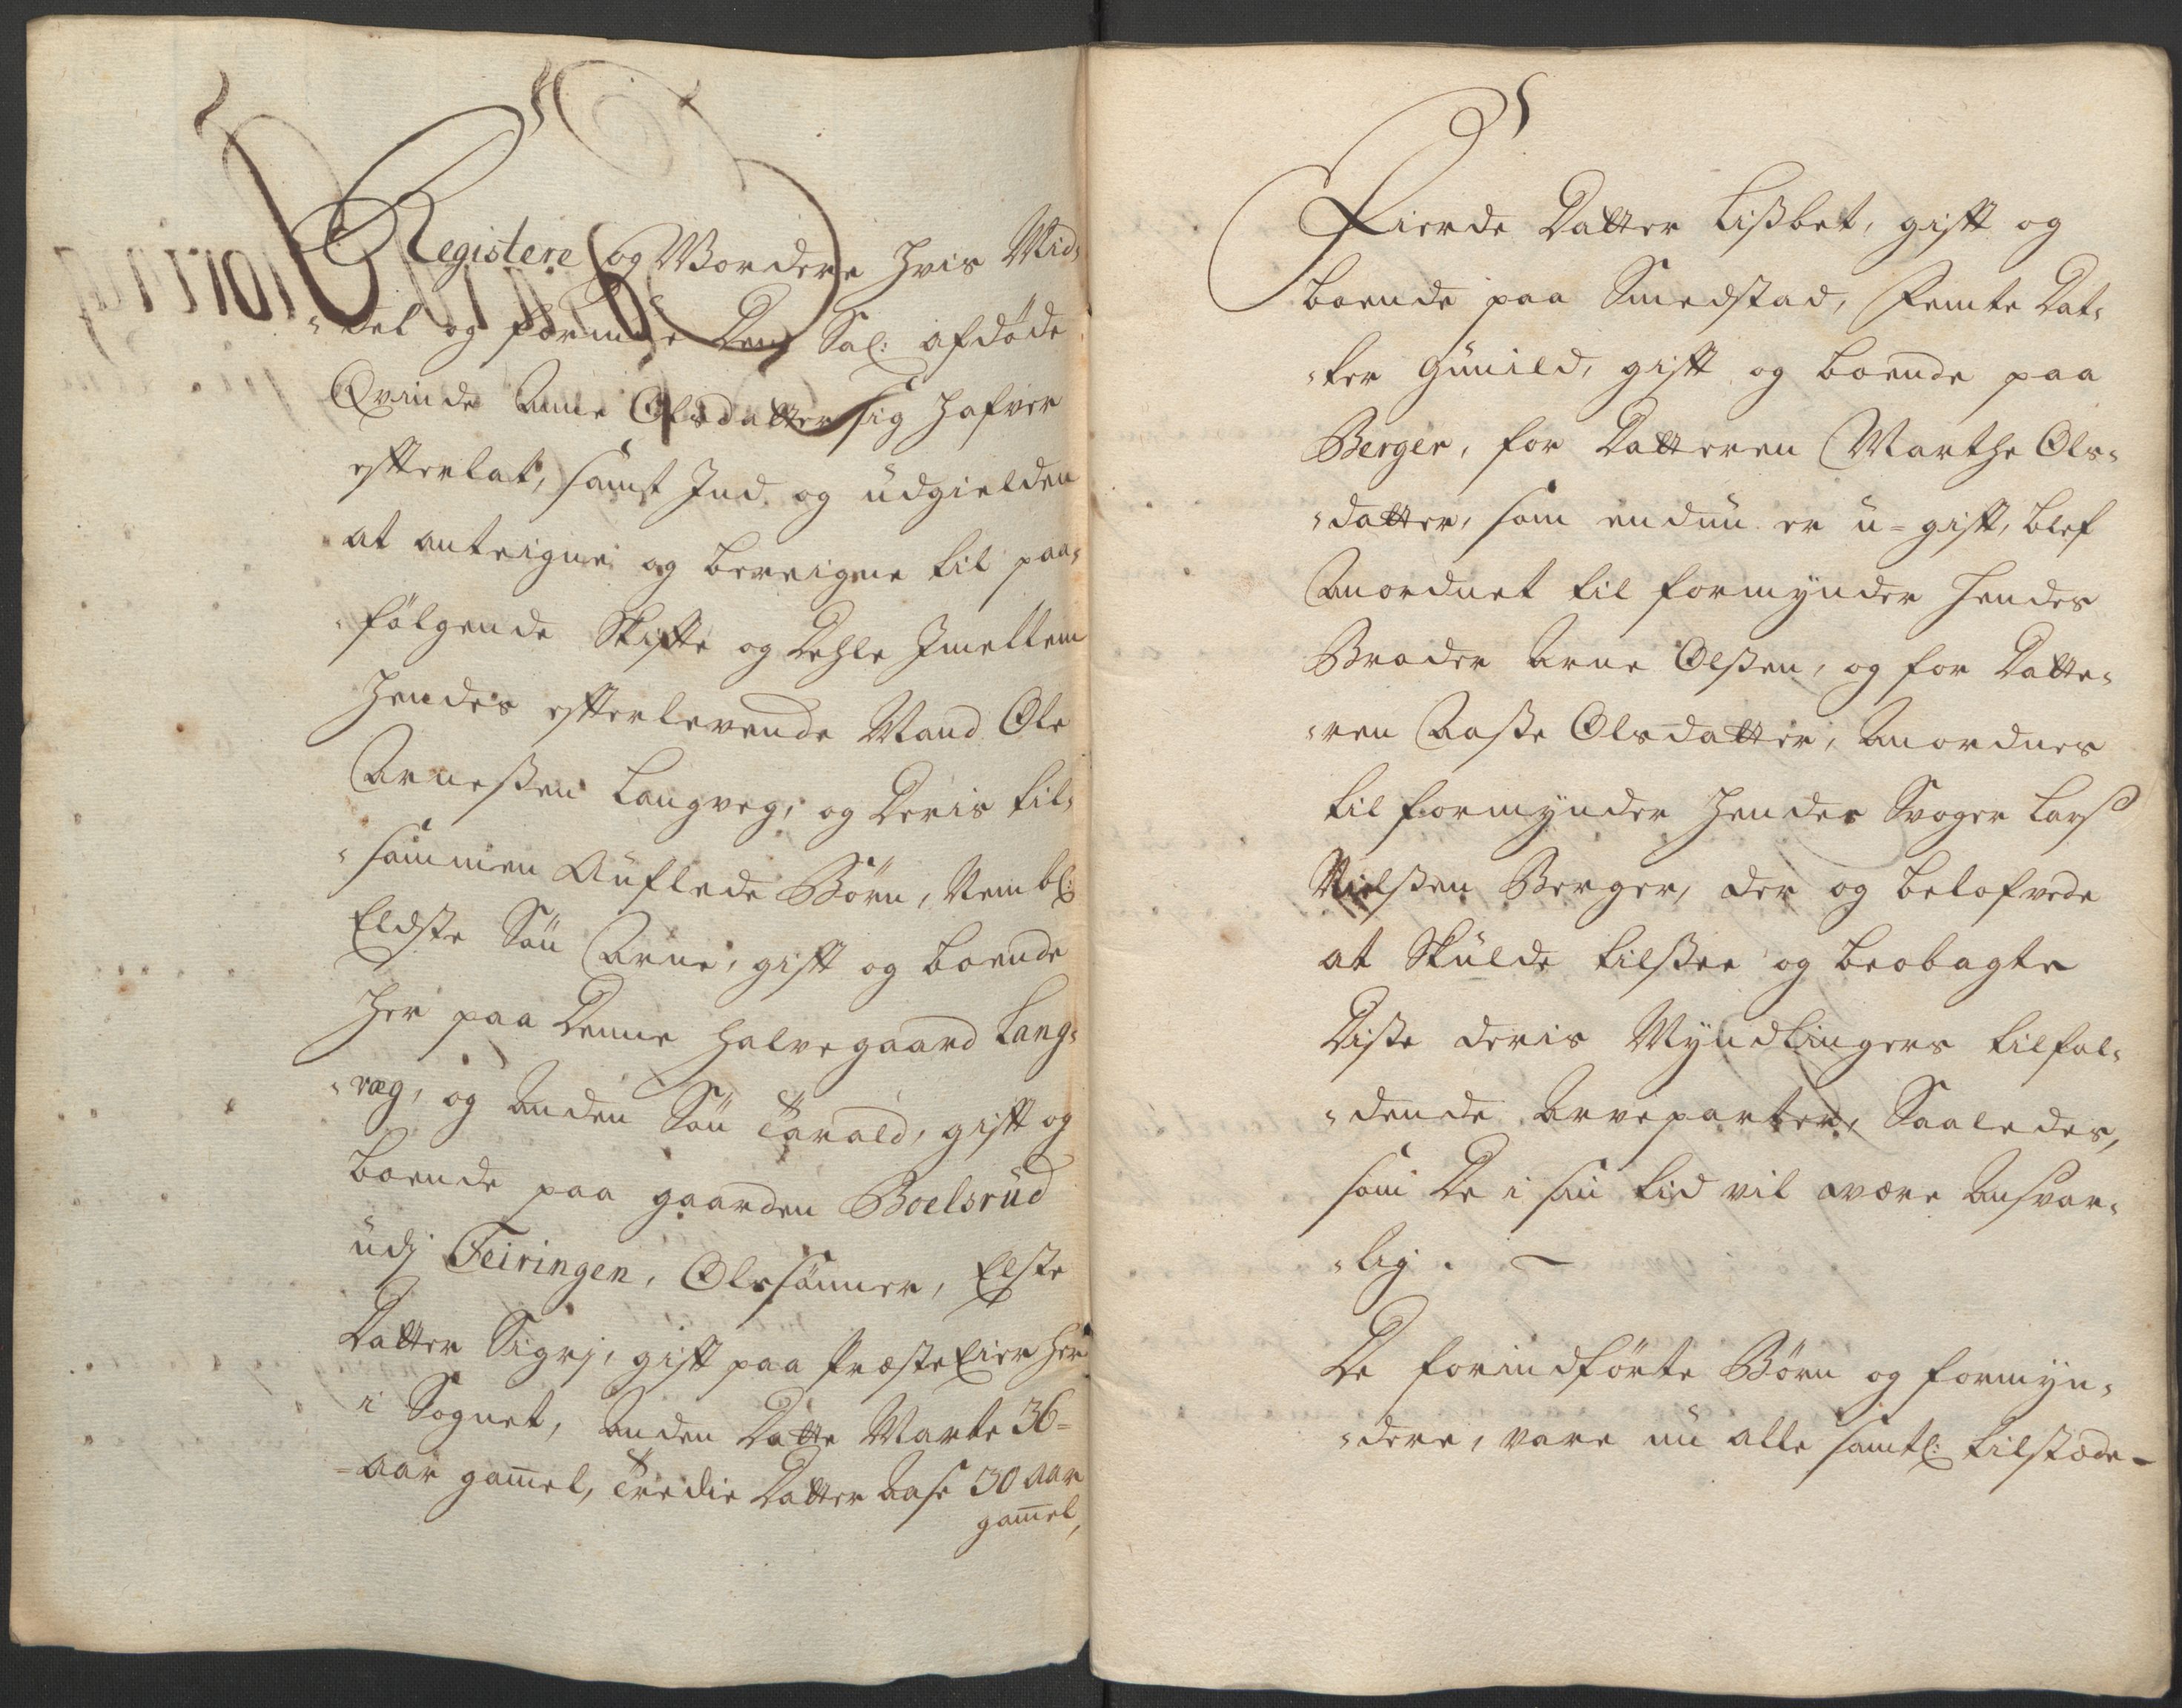 Registere og Wordere hvis Mid-
-del og formue Den Sal: afdöde
Qvinde Anne Olsdatter sig hafver
effterlat, samt Ind og üdgielden
at anteigne og bereigne til paa-
-fölgende Skiffte og Dehle Imellem
hendes effterlevende Mand Ole
Arneßen Langveg, og Deris til-
-sammen Auflede Börn, Nembl:
Eldste Sön Arne, gifft og boende
her paa Denne halvegaard Lang-
-væg, og Anden Sön Tarald, gifft og
boende paa gaarden Boelsrüd
üdj Feiringen, Olssönner, Elste
Datter Sigrj, gifft paa Præste Eier her
i Sognet, Anden Datte Marte 36=
=aar gam̄el, Tredie Datter Aase 30 aar
gam̄el,
Fierde Datter Lißbet, gifft og
boende paa Smedstad, Femte Dat-
-ter Günild, gifft og boende paa
Berger, for Datteren Marthe Ols-
-datter, som endnü er ü=gifft, blef
Anordnet til formÿnder hendes
Broder Arne Olßen, og for Datte-
-ren Aaße Olsdatter, Anordnes
til formÿnder hendes Svoger Larß
Nielßen Berger, der og belofvede
at Skülde tilßee og beobagte
Diße deris Mÿndlingers tilfal-
-dende Arveparter, Saaledes,
som De i sin tid vil være Ansvar-
-lig.
De forindförte Börn og formÿn-
-dere, vare nü alle samtl: tilstæde-